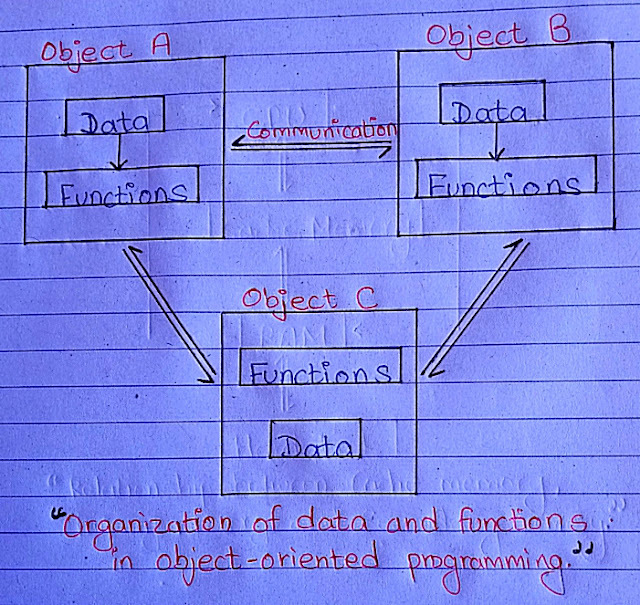 Object A
Object B
Data
Data
Communication
Functions
Functions
Object C
Functions
Data
"Organization of data and functions
in object-oriented programming."